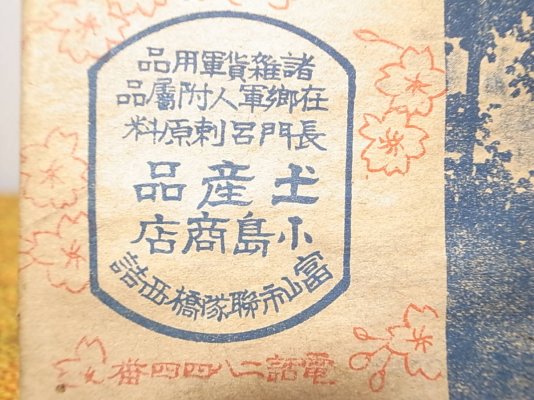 諸雜貨軍用品
在鄉軍人附屬品
長門呂刺原料
土産品
小島商店
富山市聯隊橋西詰
電話二八四四番